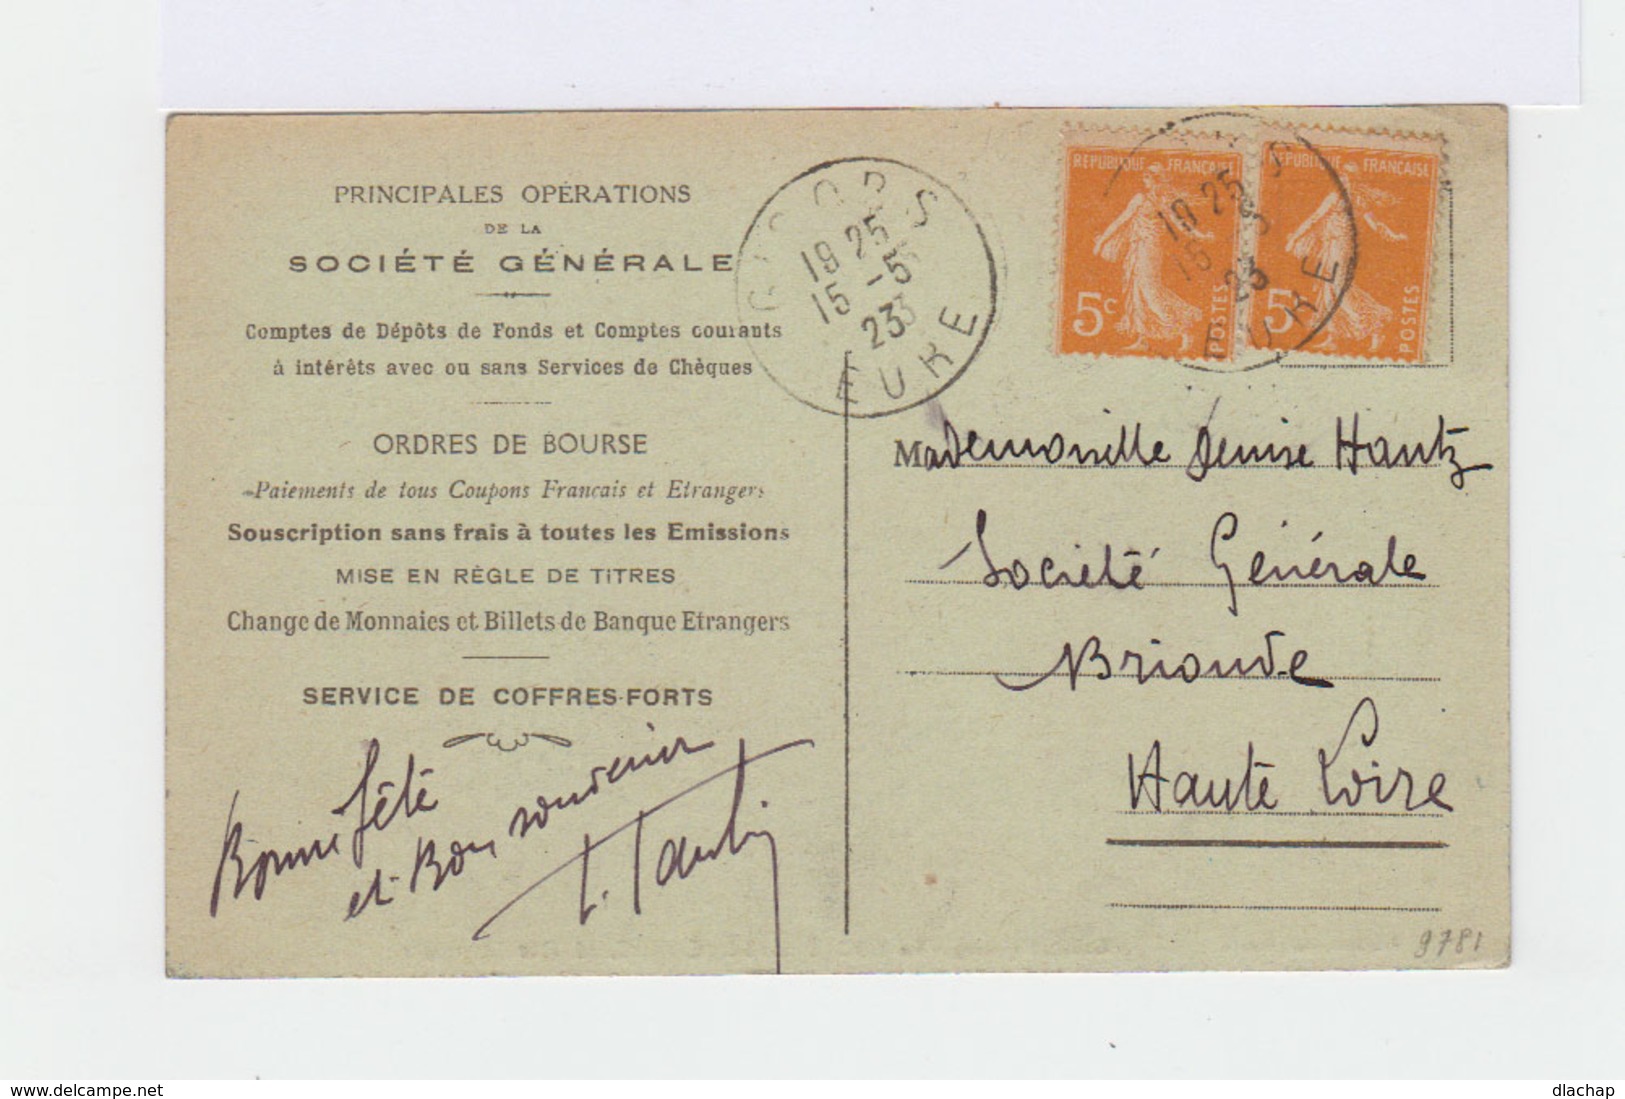 PRINCIPALES OPÉRATIONS
DE LA
SOCIÉTÉ GÉNÉRALE
Comptes de Dépôts de Fonds et Comptes courants
à intérêts avec ou sans Services de Chèques
ORDRES DE BOURSE
Paiements de tous Coupons Français et Etrangers
Souscription sans frais à toutes les Emissions
MISE EN RÈGLE DE TITRES
Change de Monnaies et Billets de Banque Etrangers
SERVICE DE COFFRES-FORTS
Bonne fête
et Bon souvenir
GISORS
19 25
15 -5
23
EURE
REPUBLIQUE FRANÇAISE
5c
POSTES
REPUBLIQUE FRANÇAISE
5
POSTES
19 25
15 5
23
EURE
Mademoiselle Denise Hautz
Société Générale
Brioude
Haute Loire
9781
www.delcampe.net
dlachap